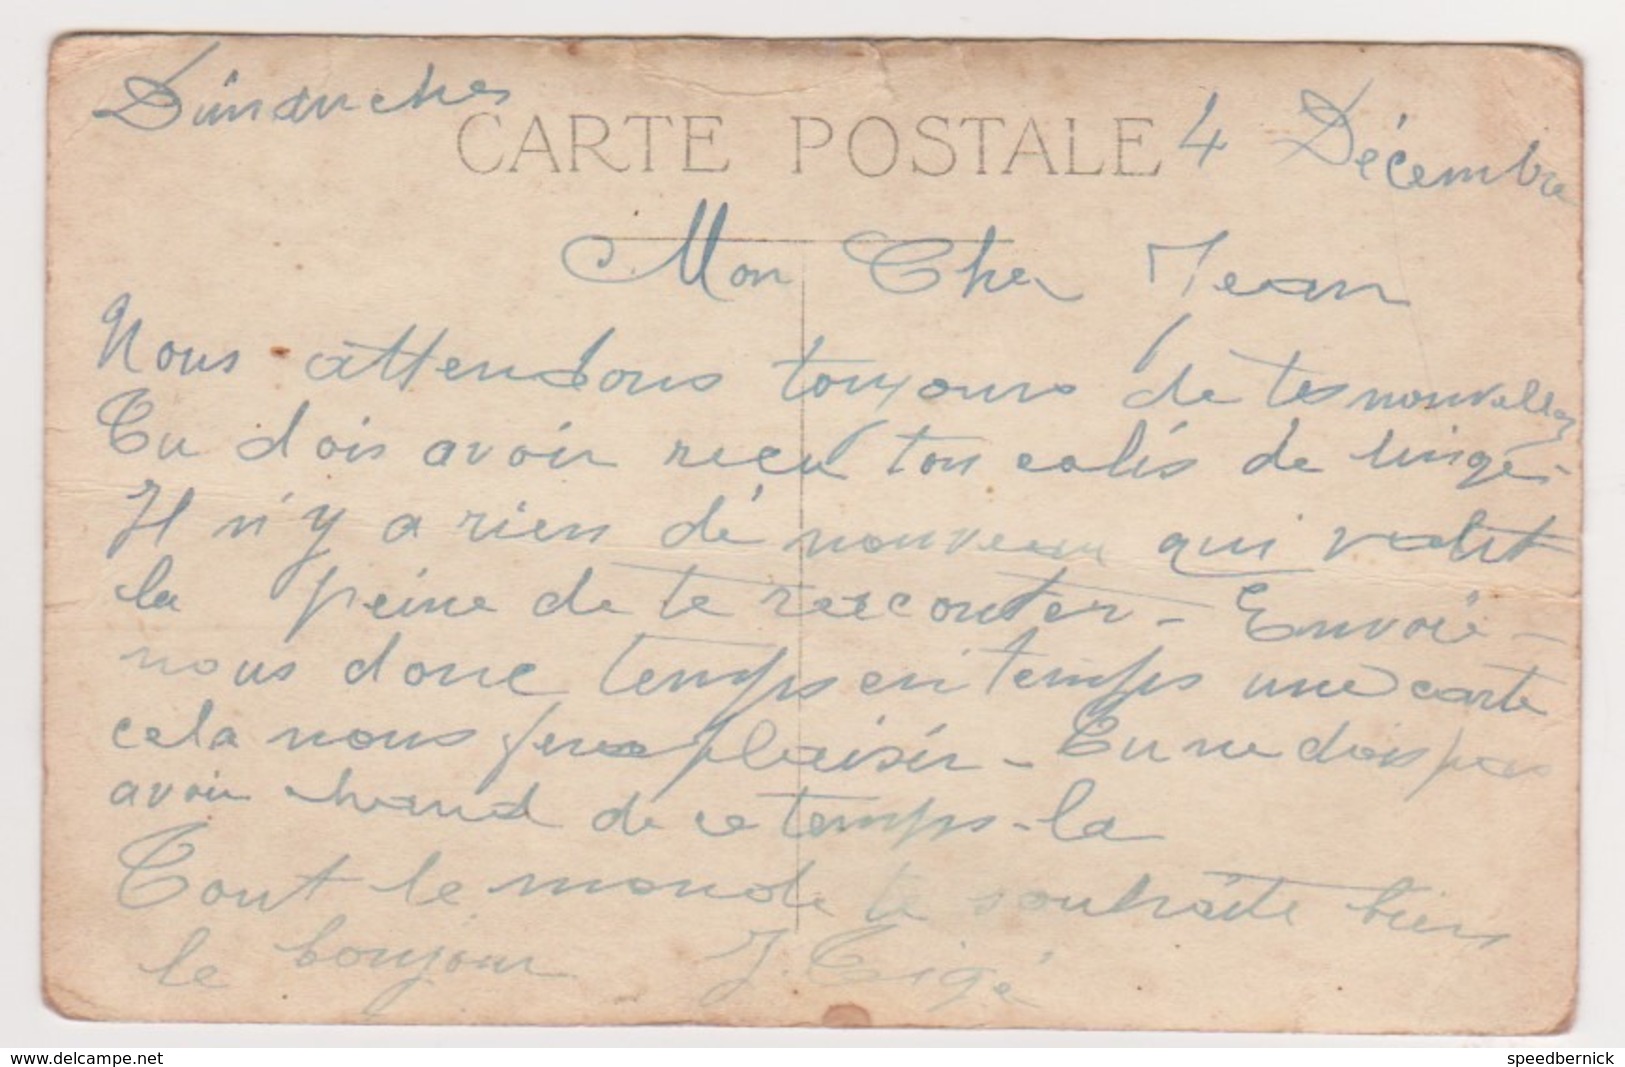 Dimanche 4 Décembre
CARTE POSTALE
Mon Cher Jean
Nous attendons toujours de tes nouvelles
Tu dois avoir reçu ton colis de linge.
Il n'y a rien de nouveau qui valut
la peine de te raconter - Envoie-
nous donc temps en temps une carte
cela nous fera plaisir - Tu ne dois pas
avoir chaud de ce temps-la
Tout le monde te souhaite bien
le bonjour J. Tigé
www.delcampe.net
speedbernick